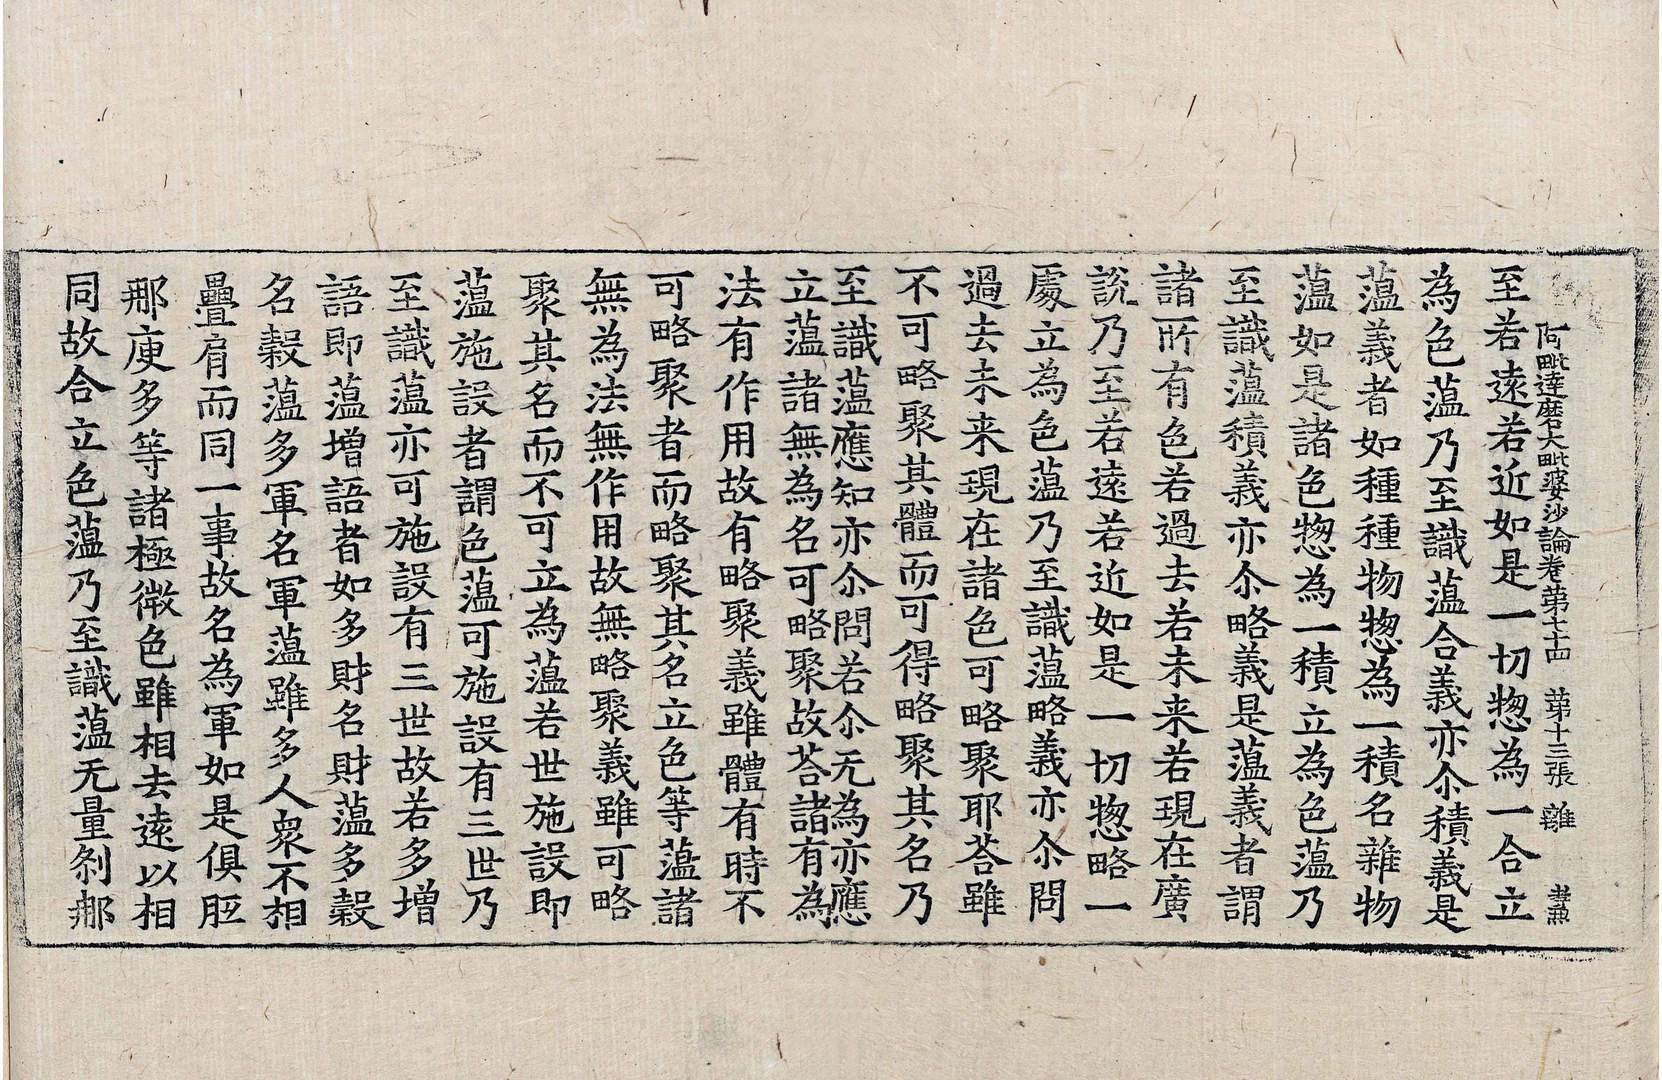 阿毗達磨大毗婆沙論卷第七十四　第十三張　雜
至若遠若近如是一切惣為一合立
為色薀乃至識薀合義亦尒積義是
薀義者如種種物惣為一積名雜物
薀如是諸色惣為一積立為色薀乃
至識薀積義亦尒略義是薀義者謂
諸所有色若過去若未来若現在廣
說乃至若遠若近如是一切惣略一
處立為色薀乃至識薀略義亦尒問
過去未来現在諸色可略聚耶荅雖
不可略聚其體而可得略聚其名乃
至識薀應知亦尒問若尒无為亦應
立薀諸無為名可略聚故荅諸有為
法有作用故有略聚義雖體有時不
可略聚者而略聚其名立色等薀諸
無為法無作用故無略聚義雖可略
聚其名而不可立為薀若世施設即
薀施設者謂色薀可施設有三世乃
至識薀亦可施設有三世故若多增
語即薀增語者如多財名財薀多糓
名糓薀多軍名軍薀雖多人衆不相
疊肩而同一事故名為軍如是俱胝
那庾多等諸極微色雖相去遠以相
同故合立色薀乃至識薀无量刹那